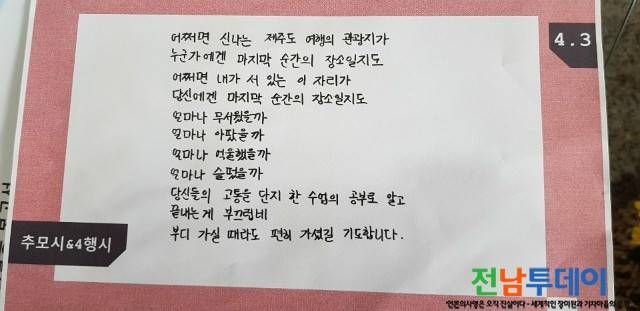 4.3
어쩌면 신나는 제주도 여행의 관광지가
누군가에겐 마지막 순간의 장소일지도
어쩌면 내가 서 있는 이 자리가
당신에겐 마지막 순간의 장소일지도
얼마나 무서웠을까
얼마나 아팠을까
얼마나 억울했을까
얼마나 슬펐을까
당신들의 고통을 단지 한 수업의 공부로 알고
끝내는게 부끄럽네
부디 가실 때라도 편히 가셨길 기도합니다.
추모시&4행시
전남투데이
언론의사명은 오직 진실이다 - 세계적인 장미원과 기차마을의